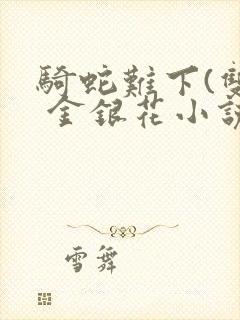 騎蛇難下(雙
金銀花小說
雪舞